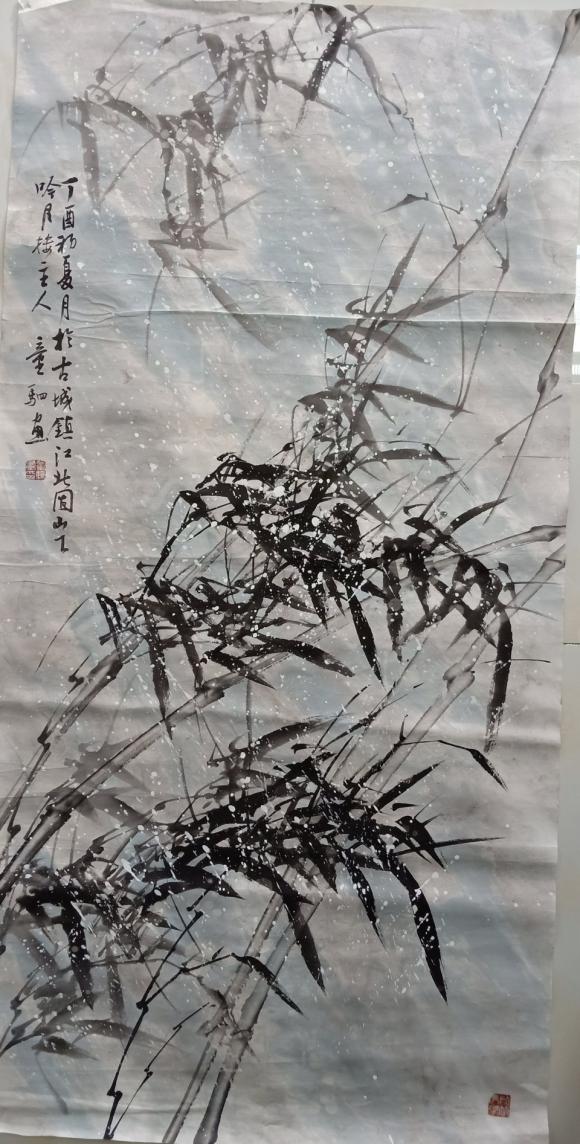 丁酉初夏月於古城鎮江北固山下
吟月楼主人 童驷画